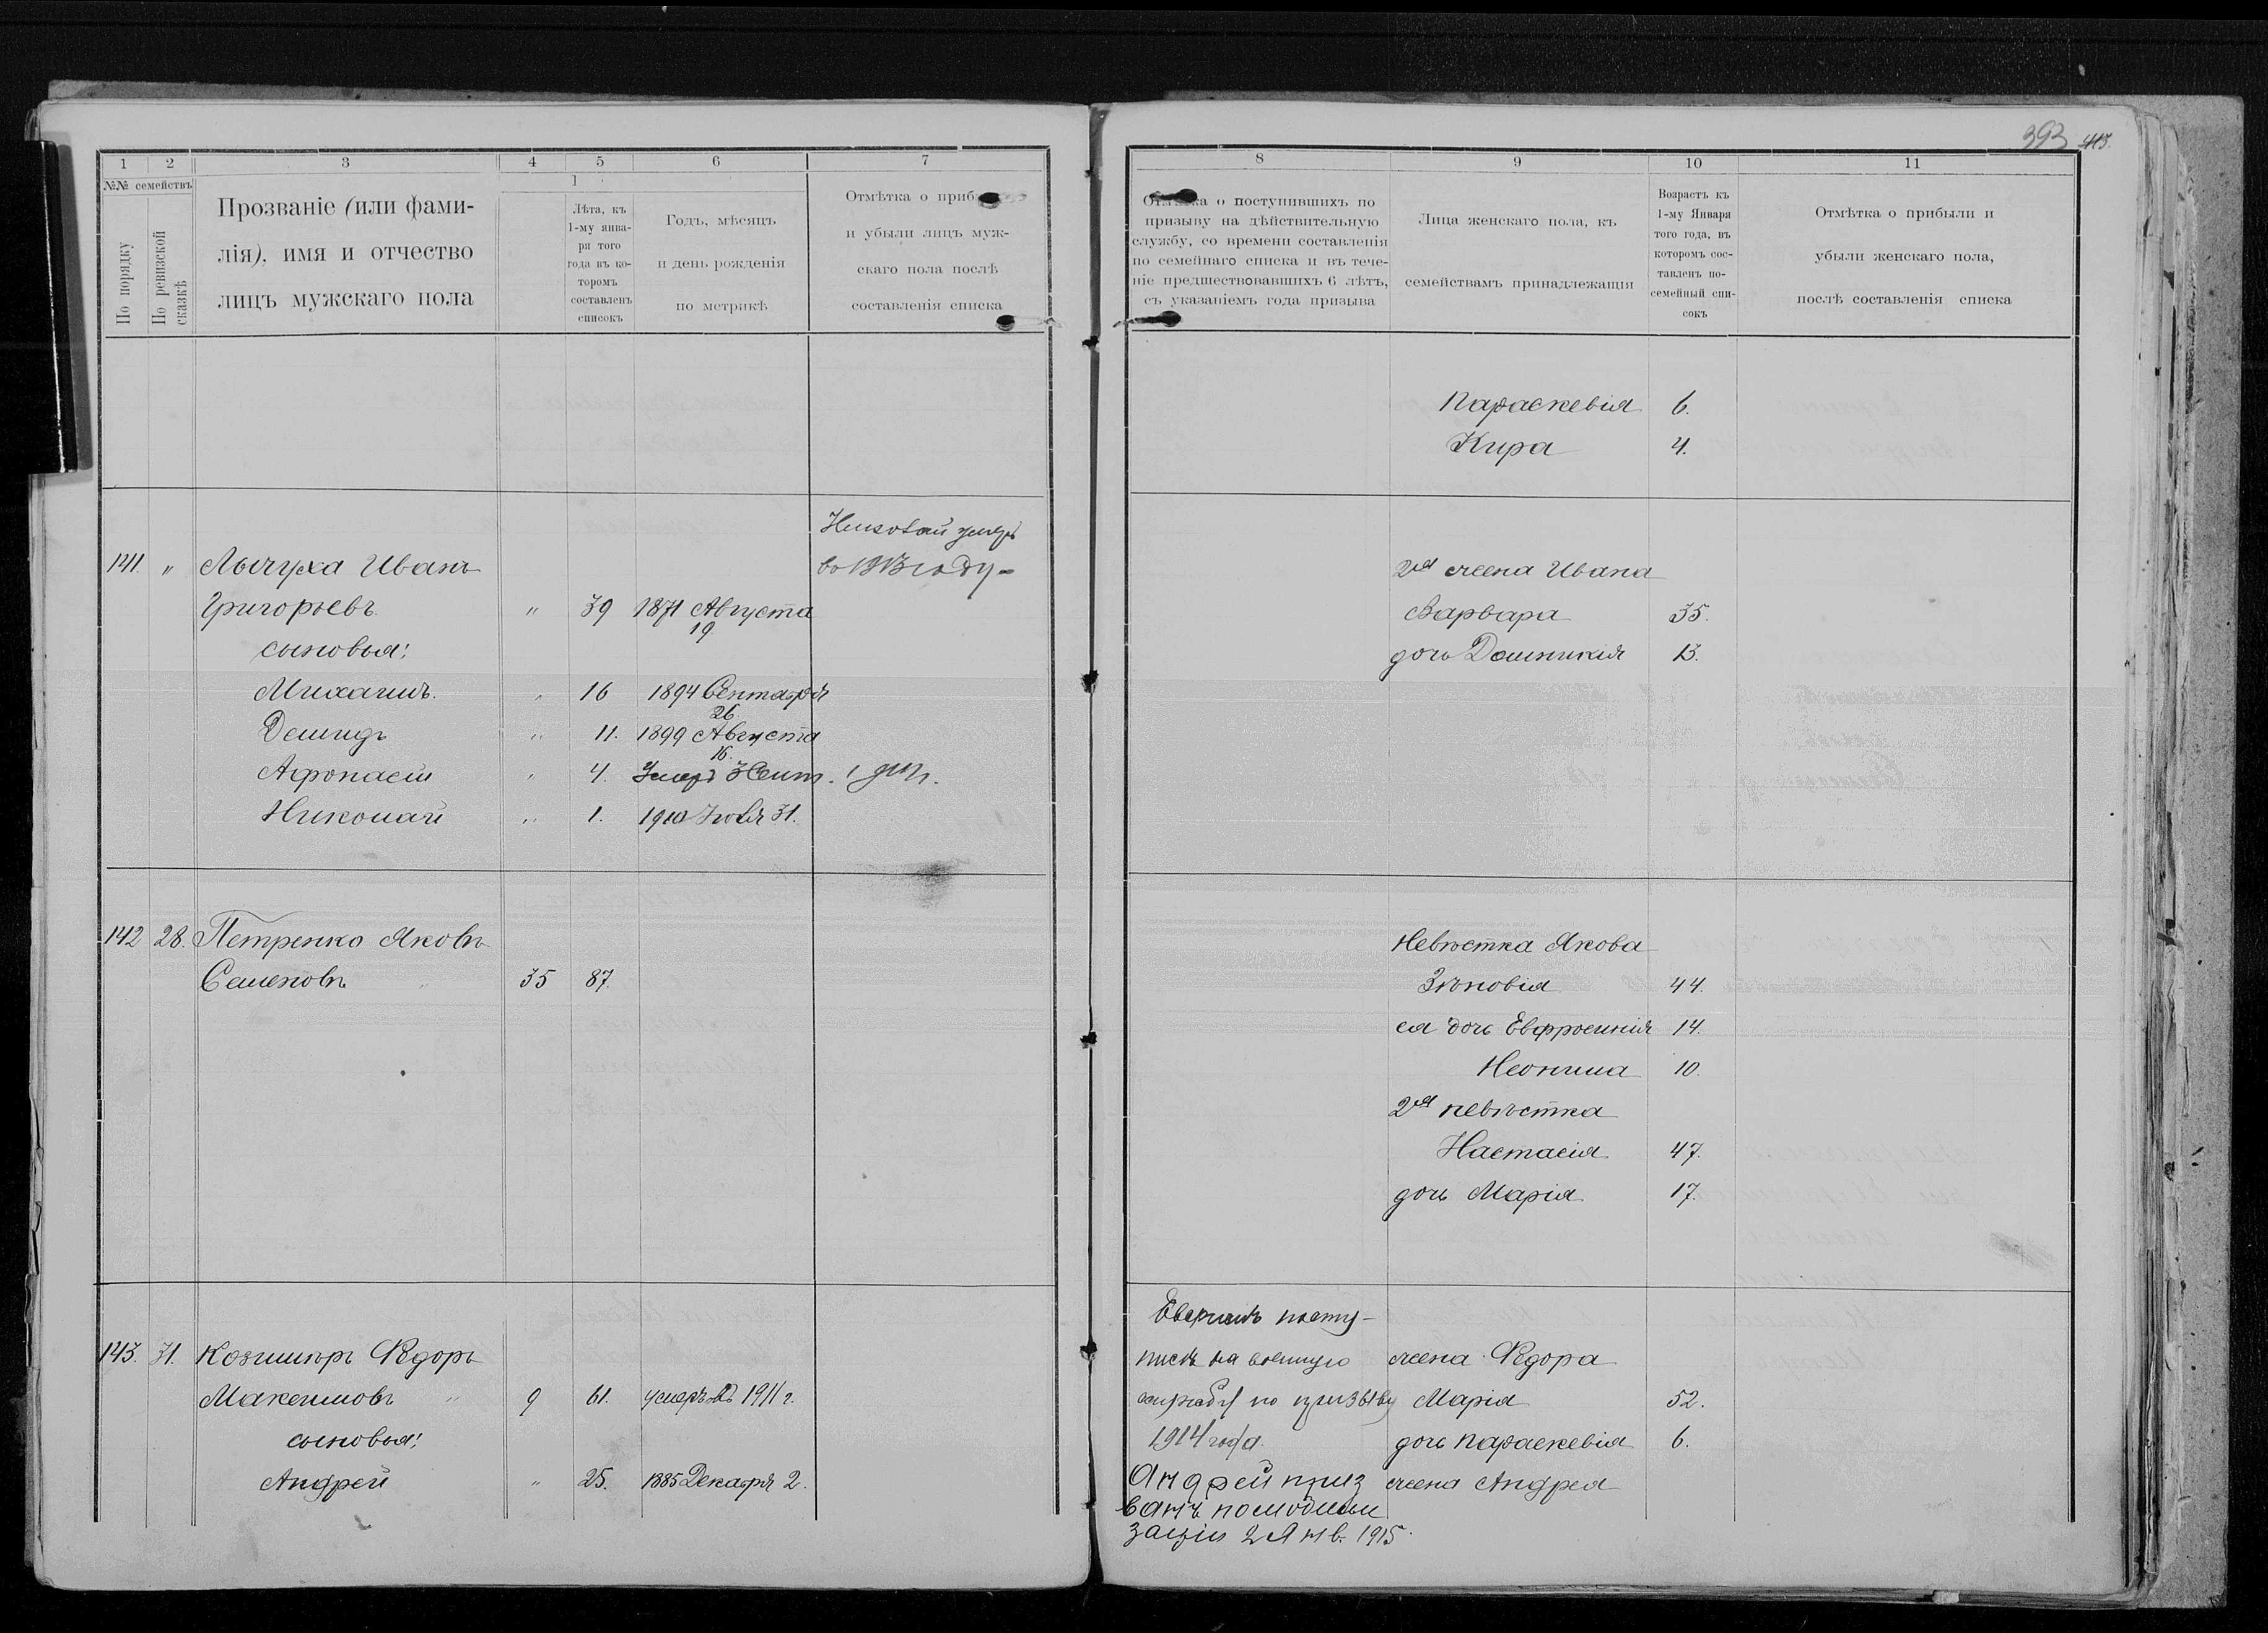 393 413.
1 2 3 4 5 6 7
№№ семействъ
По порядку
По ревизской сказкѣ
Прозваніе (или фами-
лія), имя и отчество
лицъ мужскаго пола
1
Лѣта, къ
1-му янва-
ря того
года въ ко-
торомъ
составленъ
списокъ
Годъ, мѣсяцъ
и день рожденія
по метрикѣ
Отмѣтка о приб
и убыли лицъ муж-
скаго пола послѣ
составленія списка
Николай умеръ
141. " Лычуха Иванъ во 1913 году
Григорьевъ " 39 1871 Августа
19
сыновья:
Михаилъ " 16 1894 Сентября
26
Демидъ " 11. 1899 Августа
16.
Афонасій " 4. Умеръ
Николай " 1. 1910 Іюля 31.
142 28. Петренко Яковъ
Семеновъ 35 87
143. 31. Козимиръ Ѳедоръ
Максимовъ " 9 61. умеръ въ 1911 г.
сыновья:
Андрей " 25. 1885 Декабря 2.
8 9 10 11
Отмѣтка о поступившихъ по
призыву на дѣйствительную
службу, со времени составленія
по семейнаго списка и въ тече-
ніе предшествовавшихъ 6 лѣтъ,
съ указаніемъ года призыва
Лица женскаго пола, къ
семействамъ принадлежащія
Возрастъ къ
1-му Января
того года, въ
которомъ сос-
тавленъ по-
семейный спи-
сокъ
Отмѣтка о прибыли и
убыли женскаго пола,
послѣ составленія списка
Параскевія 6.
Кира 4.
2я жена Ивана
Варвара 35.
дочь Домникія 13.
Невѣстка Якова
Зѣновія 44.
ея дочь Евфросинія 14.
Неонила 10.
2я невѣстка
Настасія 47.
дочь Марія 17.
посту-
пилъ на военную жена Ѳедора
службу по призыву Марія 52.
1914 года. дочь Параскевія 6.
Андрей приз жена Андрея
ванъ помобили
заціи 2 Янв. 1915.